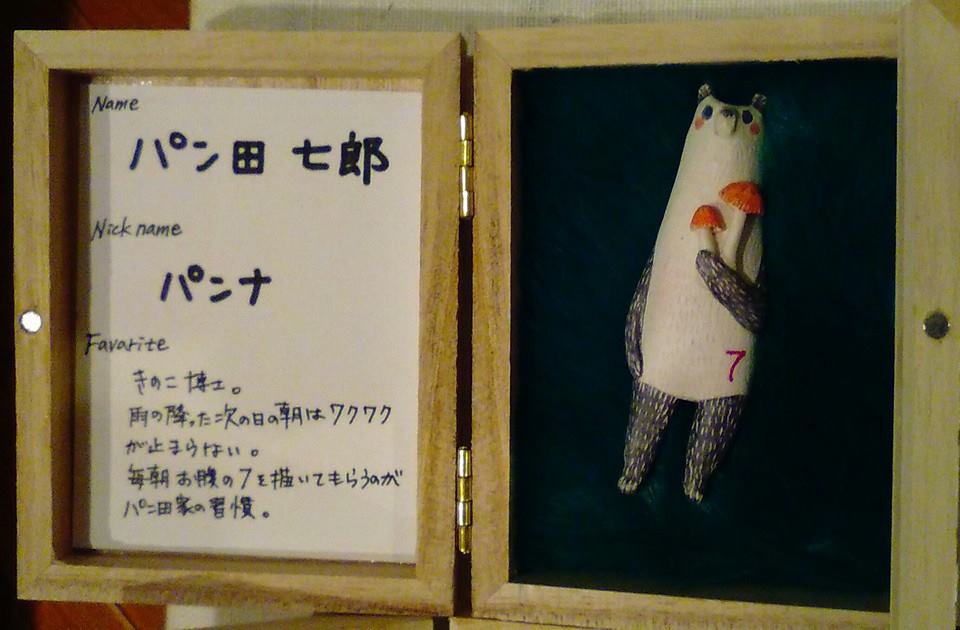 Name
パン田 七郎
Nick name
パンナ
Favarite
きのこ博士。
雨の降った次の日の朝はワクワク
が止まらない。
毎朝お腹の7を描いてもらうのが
パン田家の習慣。
7